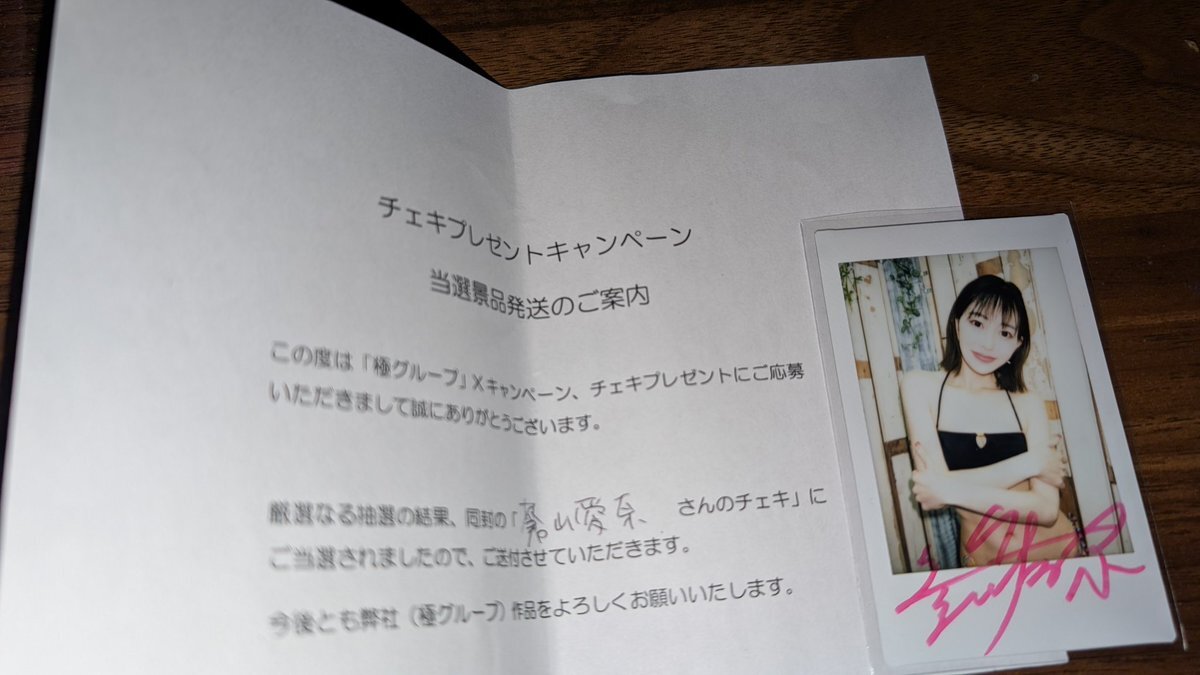 チェキプレゼントキャンペーン
当選景品発送のご案内
この度は「極グループ」Xキャンペーン、チェキプレゼントにご応募
いただきまして誠にありがとうございます。
厳選なる抽選の結果、同封の「 山愛 さんのチェキ」に
ご当選されましたので、ご送付させていただきます。
今後とも弊社（極グループ）作品をよろしくお願いいたします。